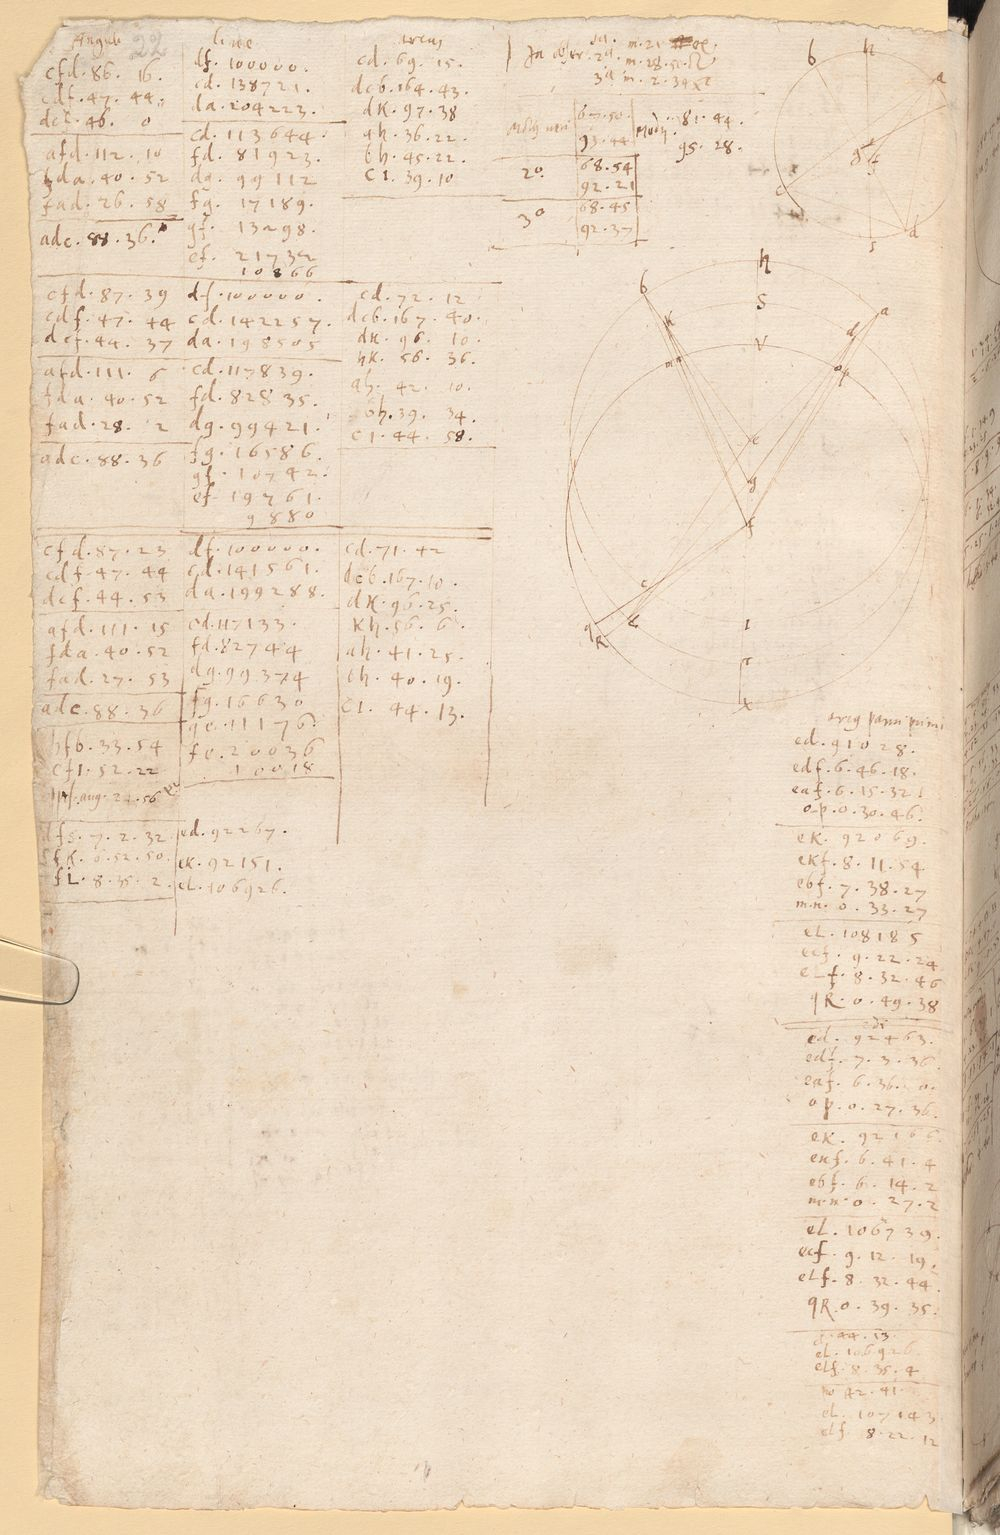 Anguli
22
cfd. 86. 16.
cdf. 47. 44.
dcf. 46. 0
afd. 112. 10
fda. 40. 52
fad. 26. 58
adc. 88. 36.
line
df. 100000.
cd. 138721.
da. 204223.
cd. 113644.
fd. 81923.
dg. 99112
fg. 17189.
gf. 13298.
ef. 21732
10866
arcus
cd. 69. 15.
dcb. 164. 43.
dK. 97. 38
ah. 36. 22.
bh. 45. 22.
c1. 39. 10
cfd. 87. 39
cdf. 47. 44
dcf. 44. 37
afd. 111. 6
fda. 40. 52
fad. 28. 2
adc. 88. 36
df. 100000.
cd. 142257.
da. 198505
cd. 117839.
fd. 82835.
dg. 99421.
fg. 16586.
gf. 10742.
ef. 19761.
9880
cd. 72. 12
dcb. 167. 40.
dK. 96. 10.
hK. 56. 36.
ah. 42. 10.
bh. 39. 34.
c1. 44. 58.
cfd. 87. 23
cdf. 47. 44
dcf. 44. 53
afd. 111. 15
fda. 40. 52
fad. 27. 53
adc. 88. 36
hfb. 33. 54
cf1. 52. 22
df. 100000.
cd. 141561.
da. 199288.
cd. 117133.
fd. 82744
dg. 99374
fg. 16630
ge. 11176.
fe. 20036
10018
cd. 71. 42
dcb. 167. 10.
dK. 96. 25.
Kh. 56. 6.
ah. 41. 25.
bh. 40. 19.
c1. 44. 13.
dfs. 7. 2. 32.
sfK. 6. 52. 50.
fL. 8. 35. 2.
ed. 92267.
eK. 92151.
eL. 106926.
m. 21
m. 28. 50
3a m. 2. 34
67. 50.
93. 44
81. 44.
95. 28.
2o.
68. 54
92. 21
3o
68. 45
92. 37
b
h
a
c
d
f
s
h
b
S
a
K
d
V
m n
o p
e
g
f
c
q
R
L
1
r
x
ed. 91028.
edf. 6. 46. 18.
eaf. 6. 15. 32
op. 0. 30. 46.
eK. 92069.
eKf. 8. 11. 54.
ebf. 7. 38. 27
mn. 0. 33. 27
eL. 108185
ecf. 9. 22. 24
eLf. 8. 32. 46
qR. 0. 49. 38
ed. 92463.
edf. 7. 3. 36.
eaf. 6. 36. 0.
op. 0. 27. 36.
eK. 92166
eKf. 6. 41. 4
ebf. 6. 14. 2
mn. 0. 27. 2
eL. 106739.
ecf. 9. 12. 19.
eLf. 8. 32. 44.
qR. 0. 39. 35.
44. 13.
eL. 106926
eLf. 8. 35. 4
42. 41.
eL. 107143
eLf. 8. 22. 12